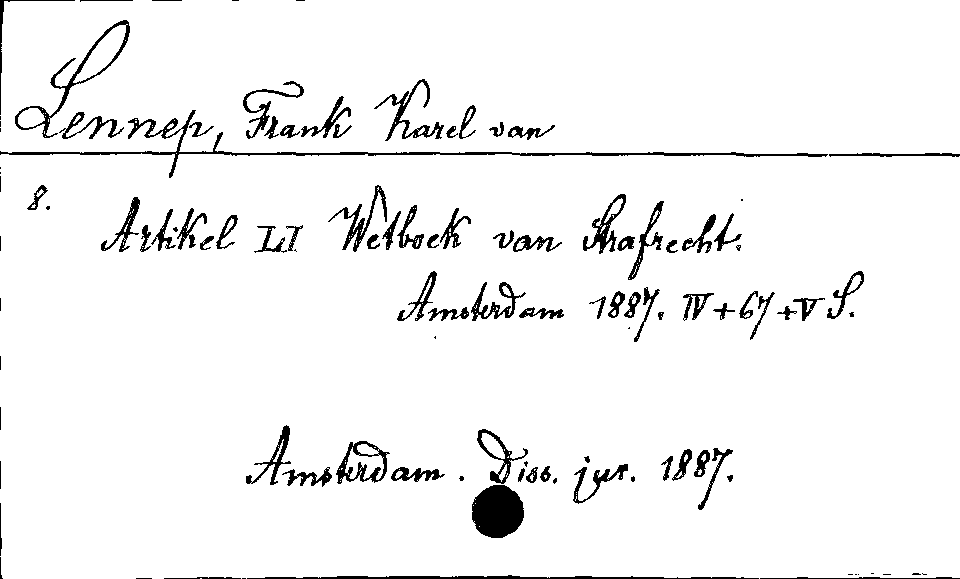 Lennep, Frank Karel van
8.
Artikel LI Wetboek van Strafrecht.
Amsterdam 1887. IV + 67 + V S.
Amsterdam. Diss. jur. 1887.